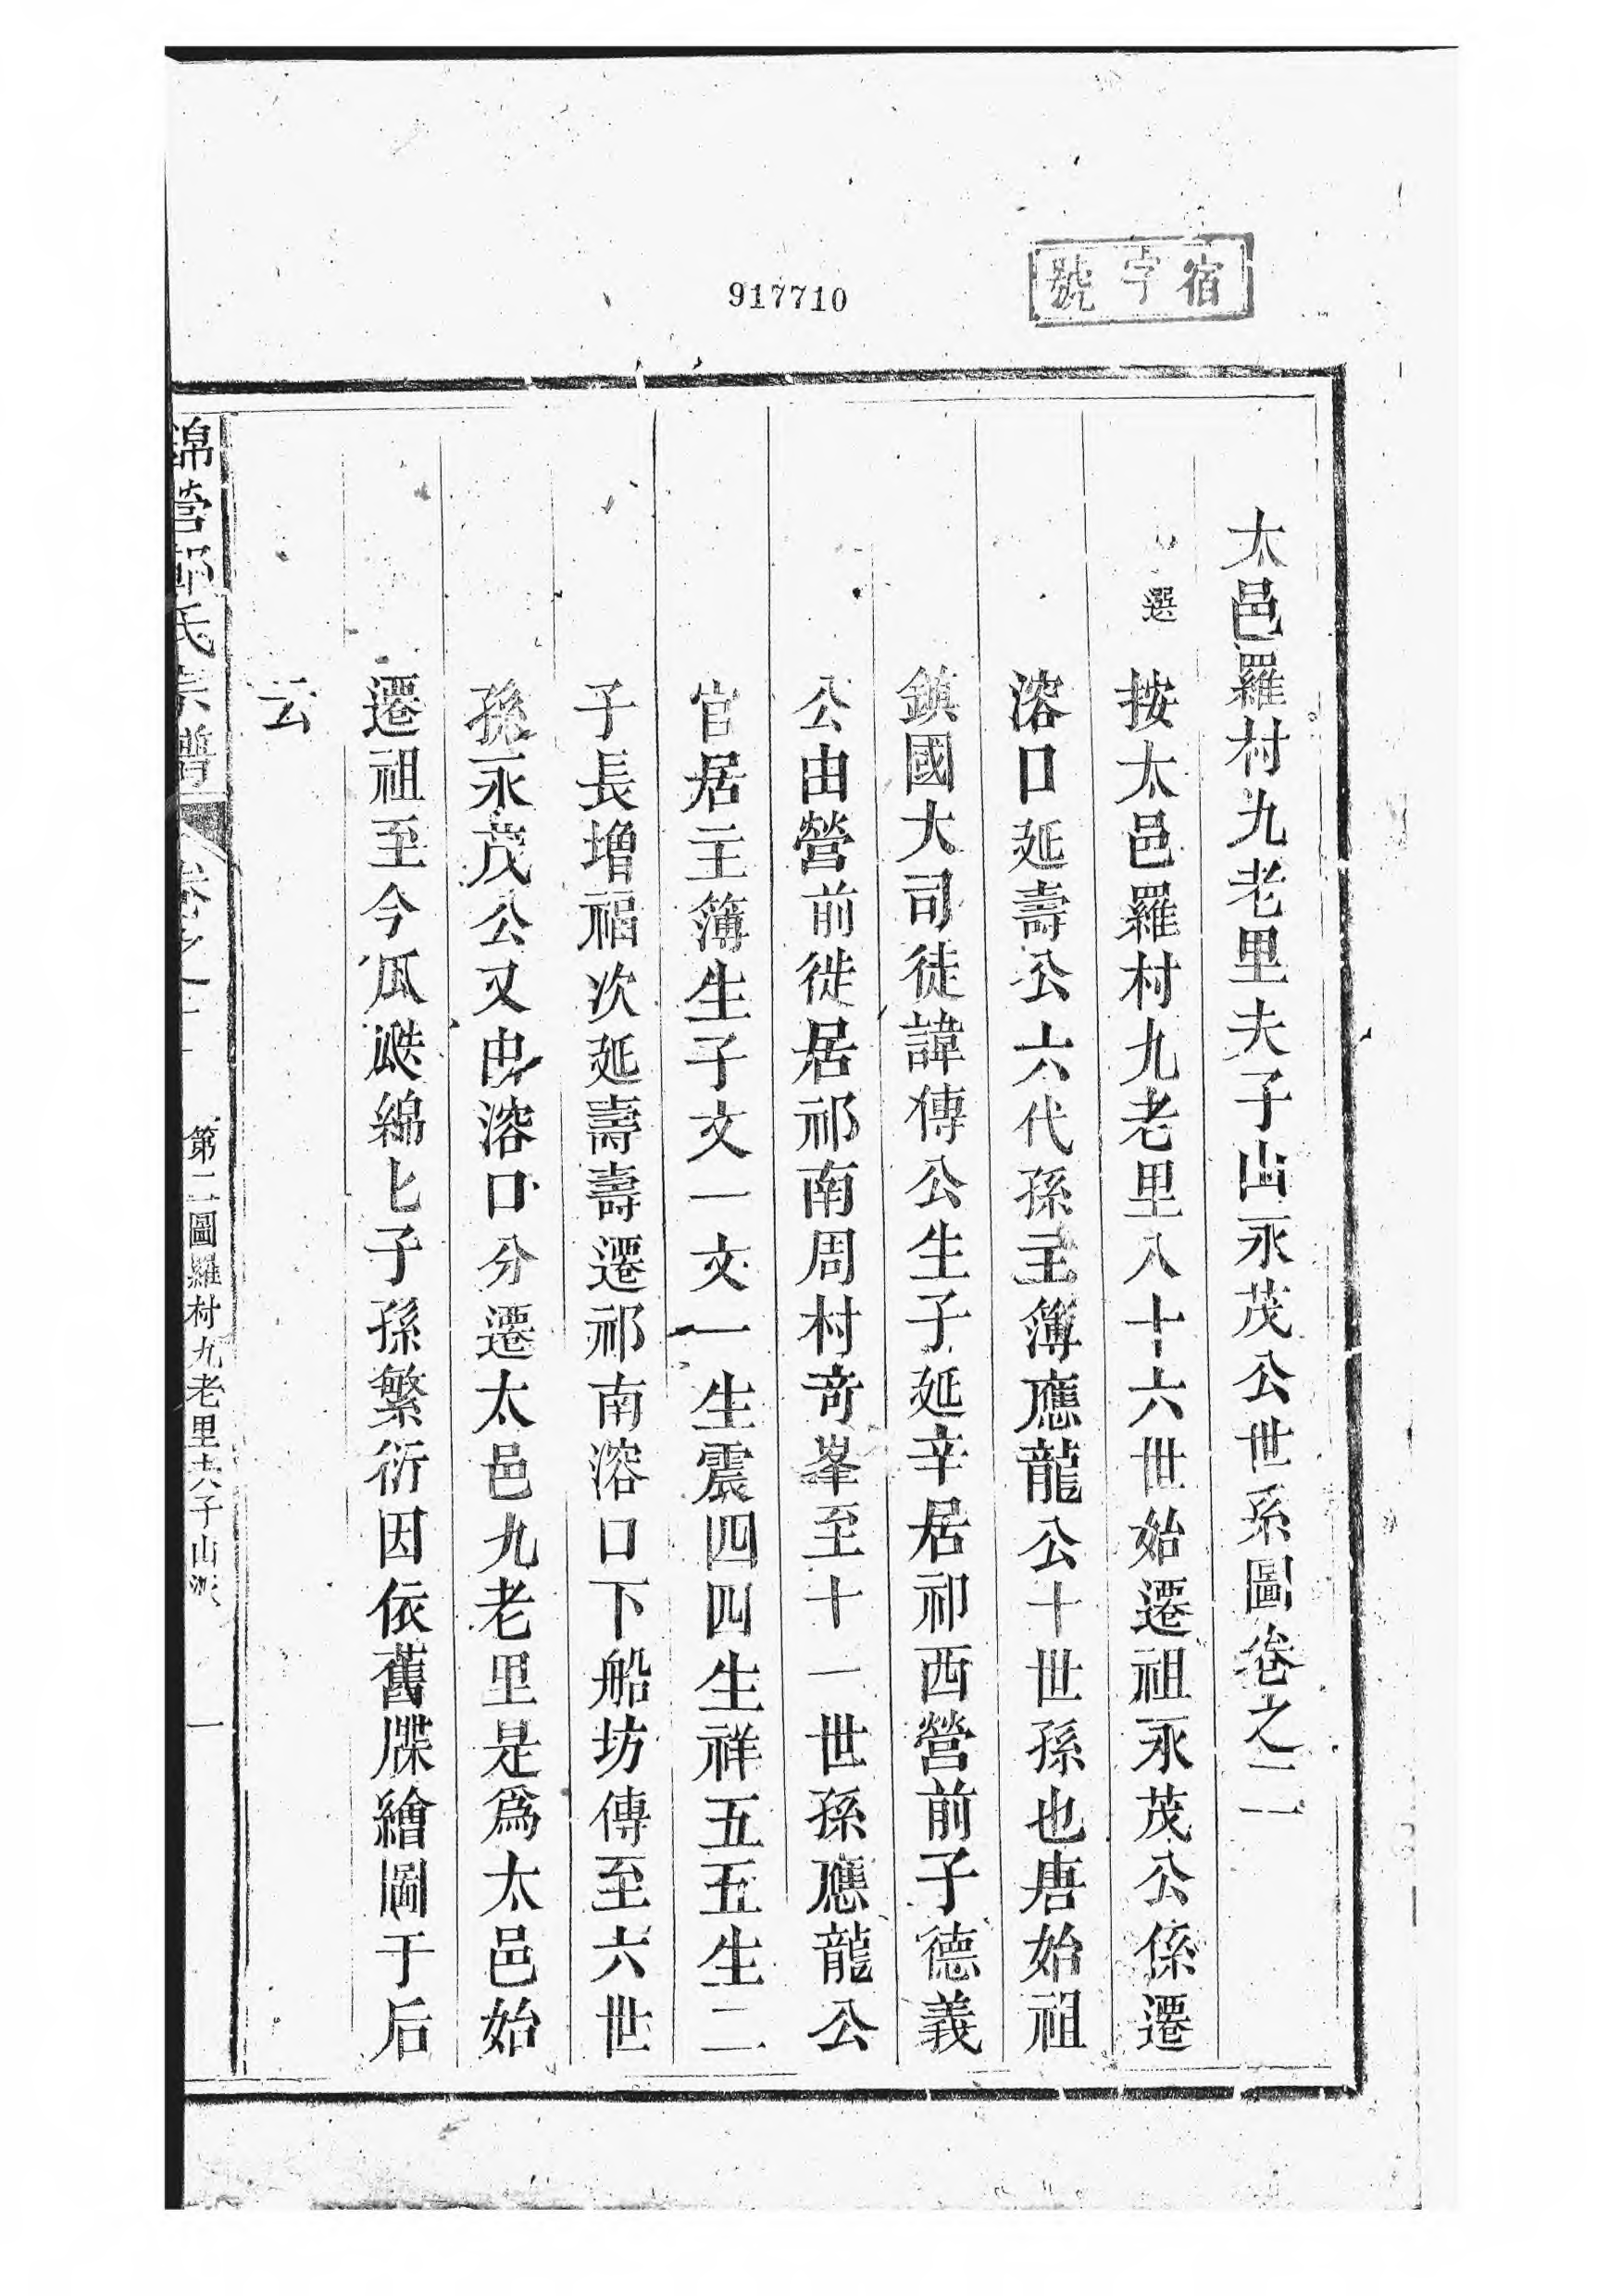 宿字號
917710
太邑羅村九老里夫子山永茂公世系圖卷之二
選
按太邑羅村九老里八十六世始遷祖永茂公係遷
溶口延壽公六代孫主簿應龍公十世孫也唐始祖
鎮國大司徒諱傳公生子延辛居祁西營前子德義
公由營前徙居祁南周村竒峯至十一世孫應龍公
官居主簿生子文一文一生震四四生祥五五生二
子長增福次延壽壽遷祁南溶口下船坊傳至六世
孫永茂公又由溶口分遷太邑九老里是為太邑始
遷祖至今瓜瓞綿匕子孫繁衍因依舊牒繪圖于后
云
營邵氏宗譜
卷之二
第二圖羅村九老里夫子山派
一